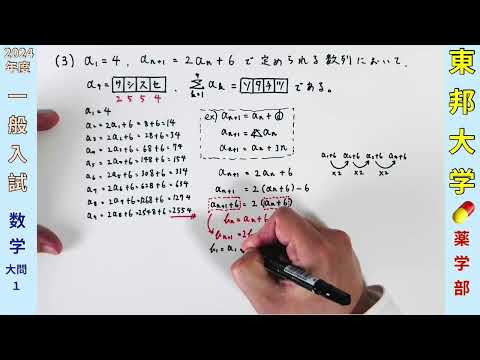 2024
年度
一般入試
数学
大問
1
東邦大学
薬学部
(3) a₁=4, aₙ₊₁ = 2aₙ+6 で定められる数列において,
a₉ = サシスセ, Σ⁹ₖ₌₁ aₖ = ソタチツ である。
2 5 5 4
a₁ = 4
a₂ = 2a₁+6 = 8+6 = 14
a₃ = 2a₂+6 = 28+6 = 34
a₄ = 2a₃+6 = 68+6 = 74
a₅ = 2a₄+6 = 148+6 = 154
a₆ = 2a₅+6 = 308+6 = 314
a₇ = 2a₆+6 = 628+6 = 634
a₈ = 2a₇+6 = 1268+6 = 1274
a₉ = 2a₈+6 = 2548+6 = 2554
ex) aₙ₊₁ = aₙ + d
aₙ₊₁ = aₙ
aₙ₊₁ = aₙ + 3n
aₙ₊₁ = 2aₙ+6
aₙ₊₁ = 2(aₙ+6) - 6
aₙ₊₁+6 = 2(aₙ+6)
bₙ = aₙ+6
bₙ₊₁ = 2b
b₁ = a₁
a₁+6 a₂+6 a₃+6 a₄+6
×2 ×2 ×2